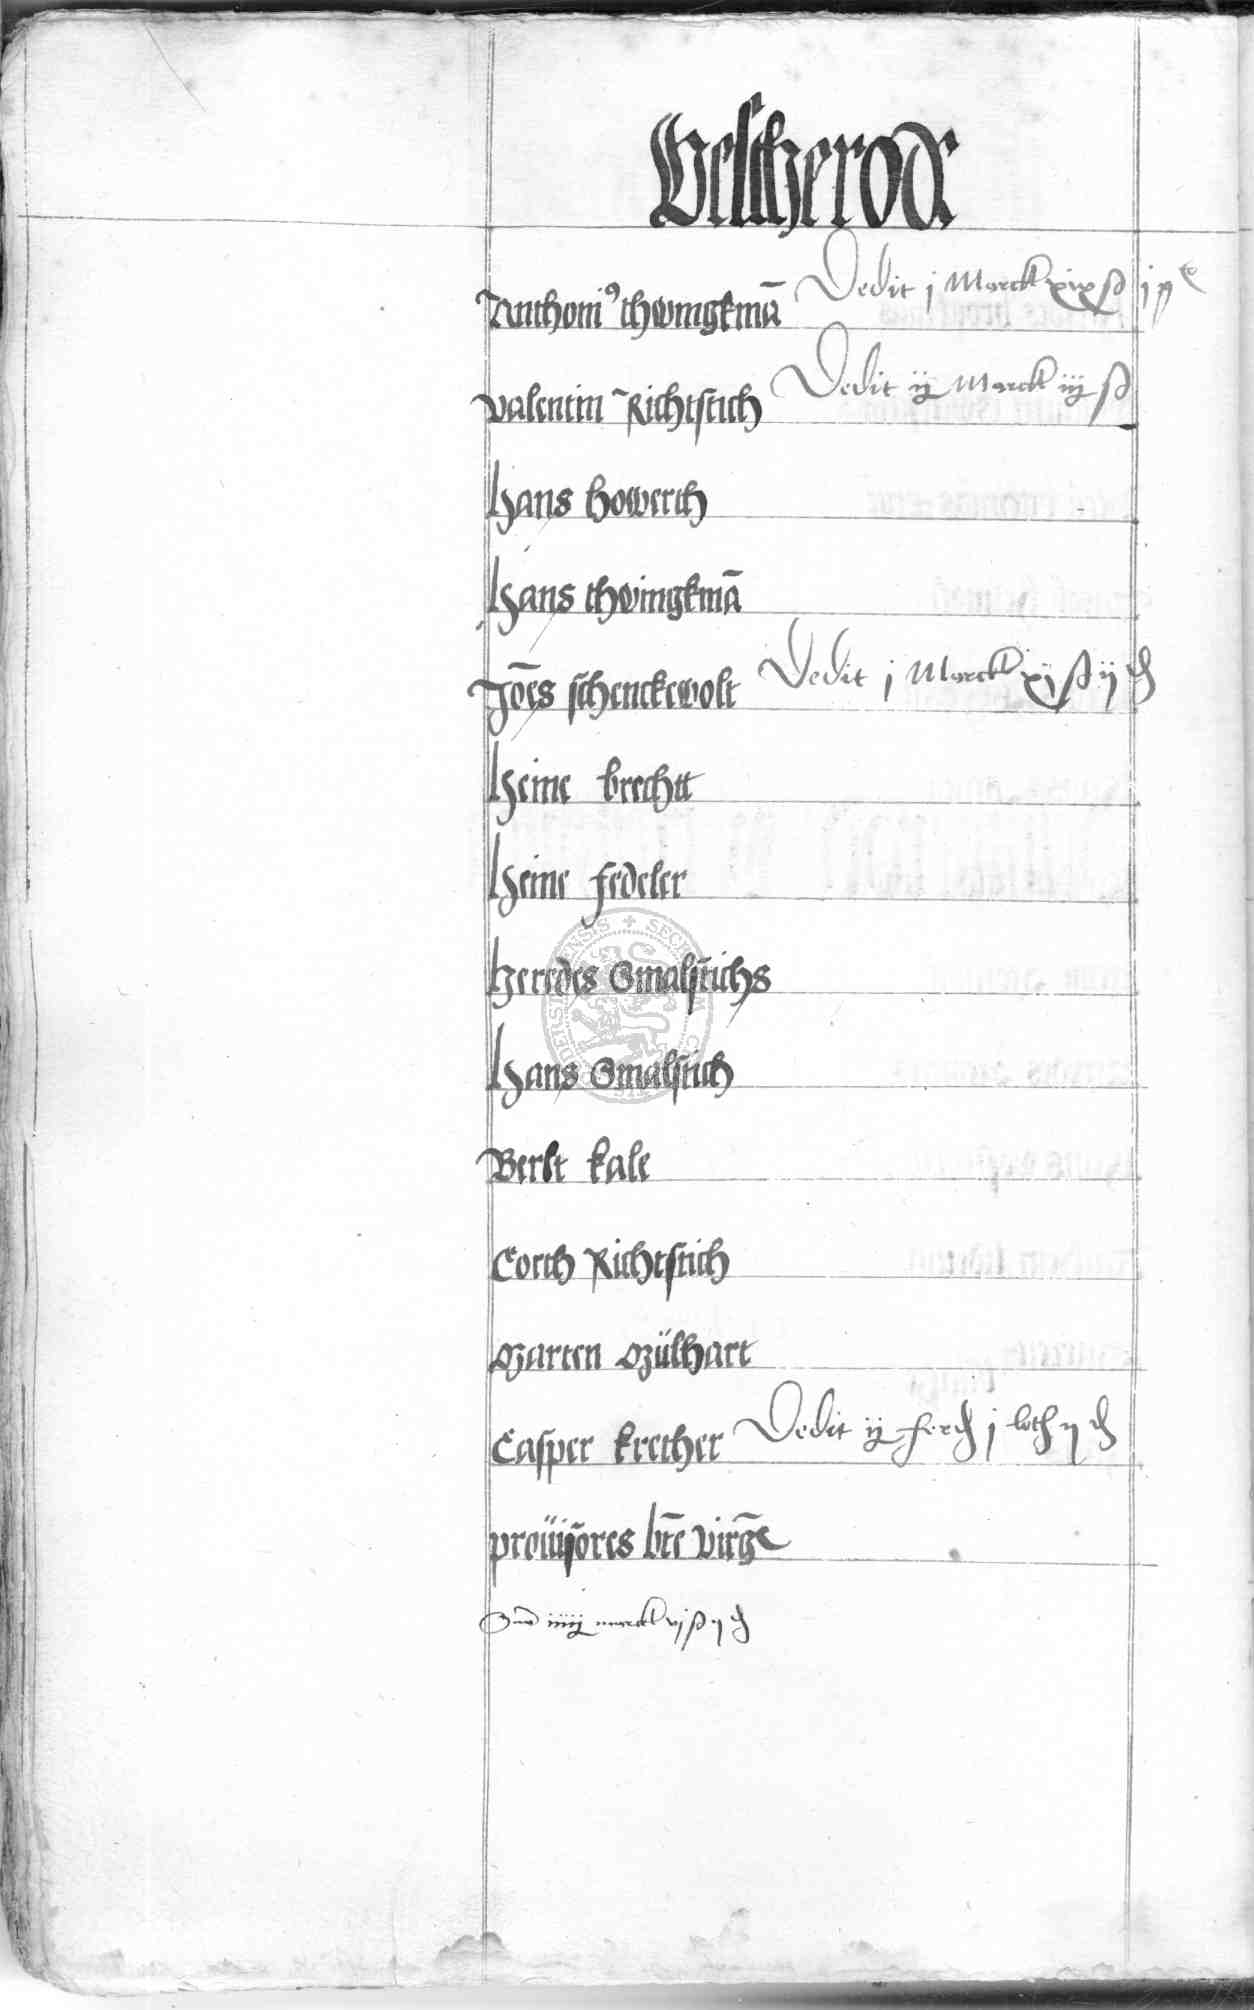 Elscherode
Anthoni9 thwingkmā Dedit j Marck xix ß j
Valentin Richtstich Dedit ij Marck iiij ß
Hans howerch
Hans thwingkmā
Joēs schenckewolt Dedit j Marck xj ß ij ₰
Heine brechtt
Heine fedeler
Heredes Smalstichs
Hans Smalstich
Berlt kale
Corth Richtstich
Marten Mülhart
Casper krether Dedit ij ferd j loth ij ₰
prouisores bte virgē
marck vj ß ij ₰